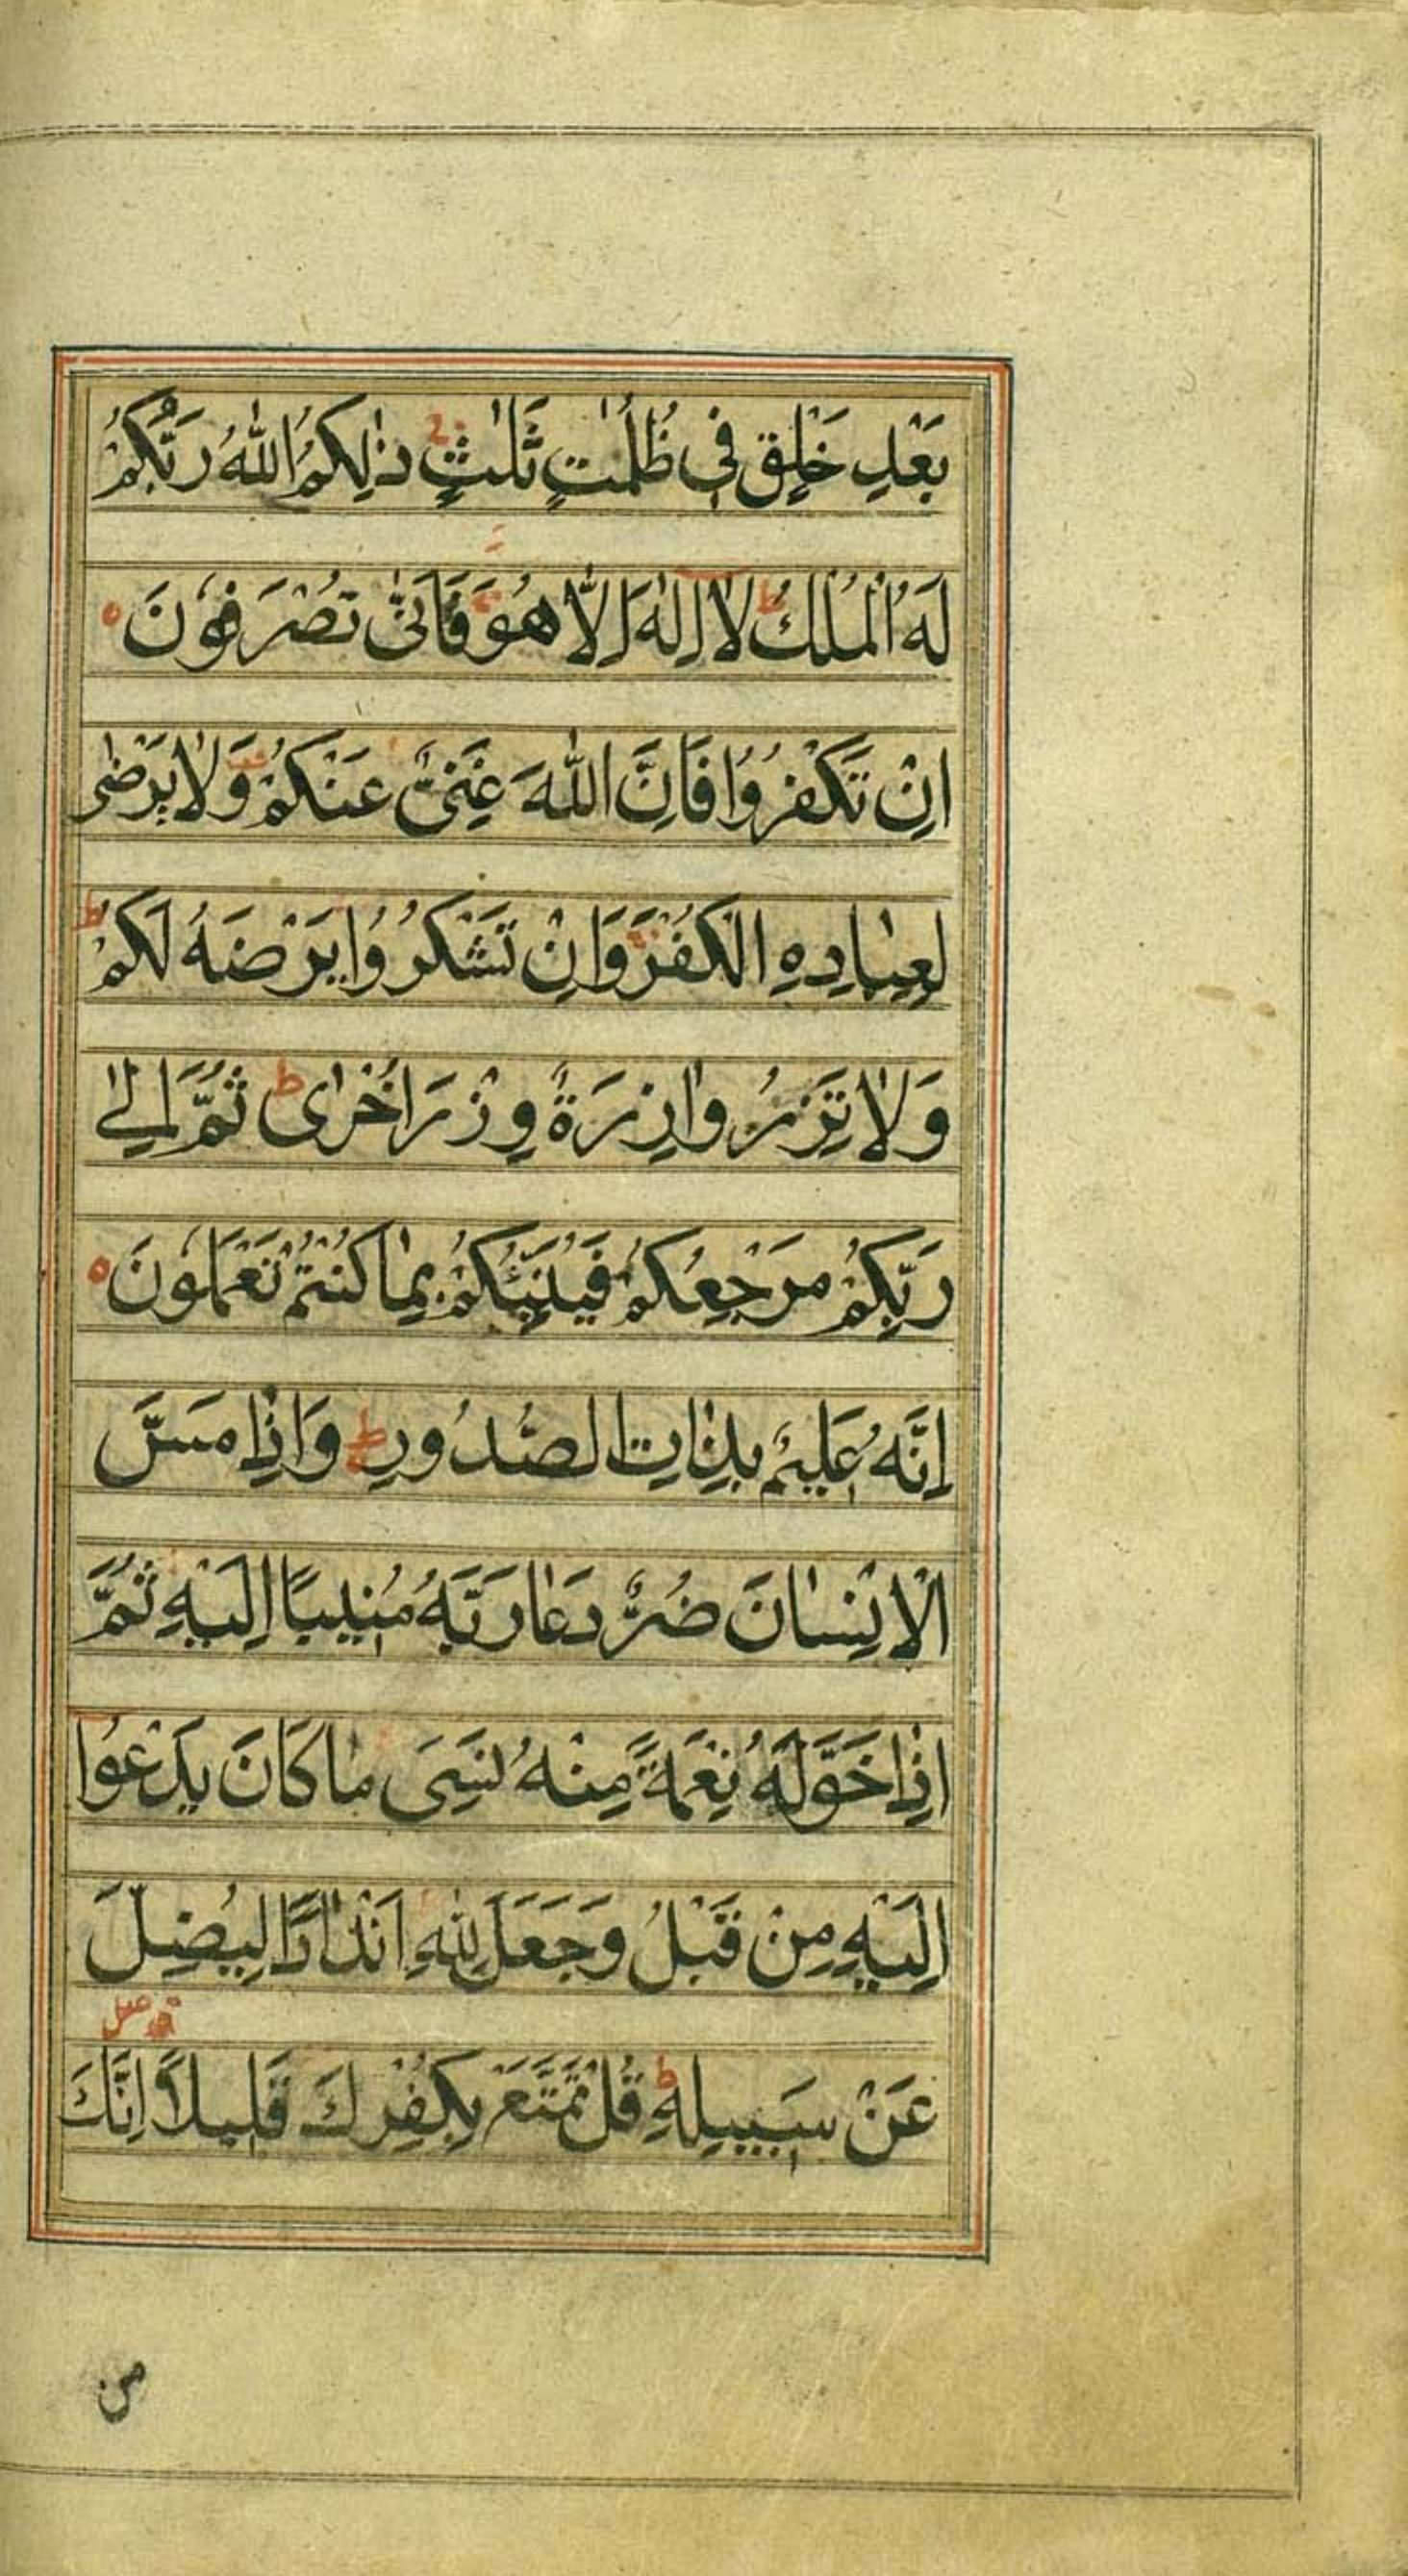 بَعْدِ خَلْقٍ فِي ظُلُمٰتٍ ثَلٰثٍ ذٰلِكُمُ اللّٰهُ رَبُّكُمْ
لَهُ الْمُلْكُ ط لَا اِلٰهَ اِلَّا هُوَ فَاَنّٰى تُصْرَفُوْنَ ه
اِنْ تَكْفُرُوْا فَاِنَّ اللّٰهَ غَنِيٌّ عَنْكُمْ وَلَا يَرْضٰى
لِعِبَادِهِ الْكُفْرَ وَاِنْ تَشْكُرُوْا يَرْضَهُ لَكُمْ ط
وَلَا تَزِرُ وَازِرَةٌ وِزْرَ اُخْرٰى ط ثُمَّ اِلٰى
رَبِّكُمْ مَرْجِعُكُمْ فَيُنَبِّئُكُمْ بِمَا كُنْتُمْ تَعْمَلُوْنَ ه
اِنَّهُ عَلِيْمٌ بِذَاتِ الصُّدُوْرِ ط وَاِذَا مَسَّ
الْاِنْسَانَ ضُرٌّ دَعَا رَبَّهُ مُنِيْبًا اِلَيْهِ ثُمَّ
اِذَا خَوَّلَهُ نِعْمَةً مِنْهُ نَسِيَ مَا كَانَ يَدْعُوْا
اِلَيْهِ مِنْ قَبْلُ وَجَعَلَ لِلّٰهِ اَنْدَادًا لِيُضِلَّ
عَنْ سَبِيْلِهِ ط قُلْ تَمَتَّعْ بِكُفْرِكَ قَلِيْلًا اِنَّكَ
من